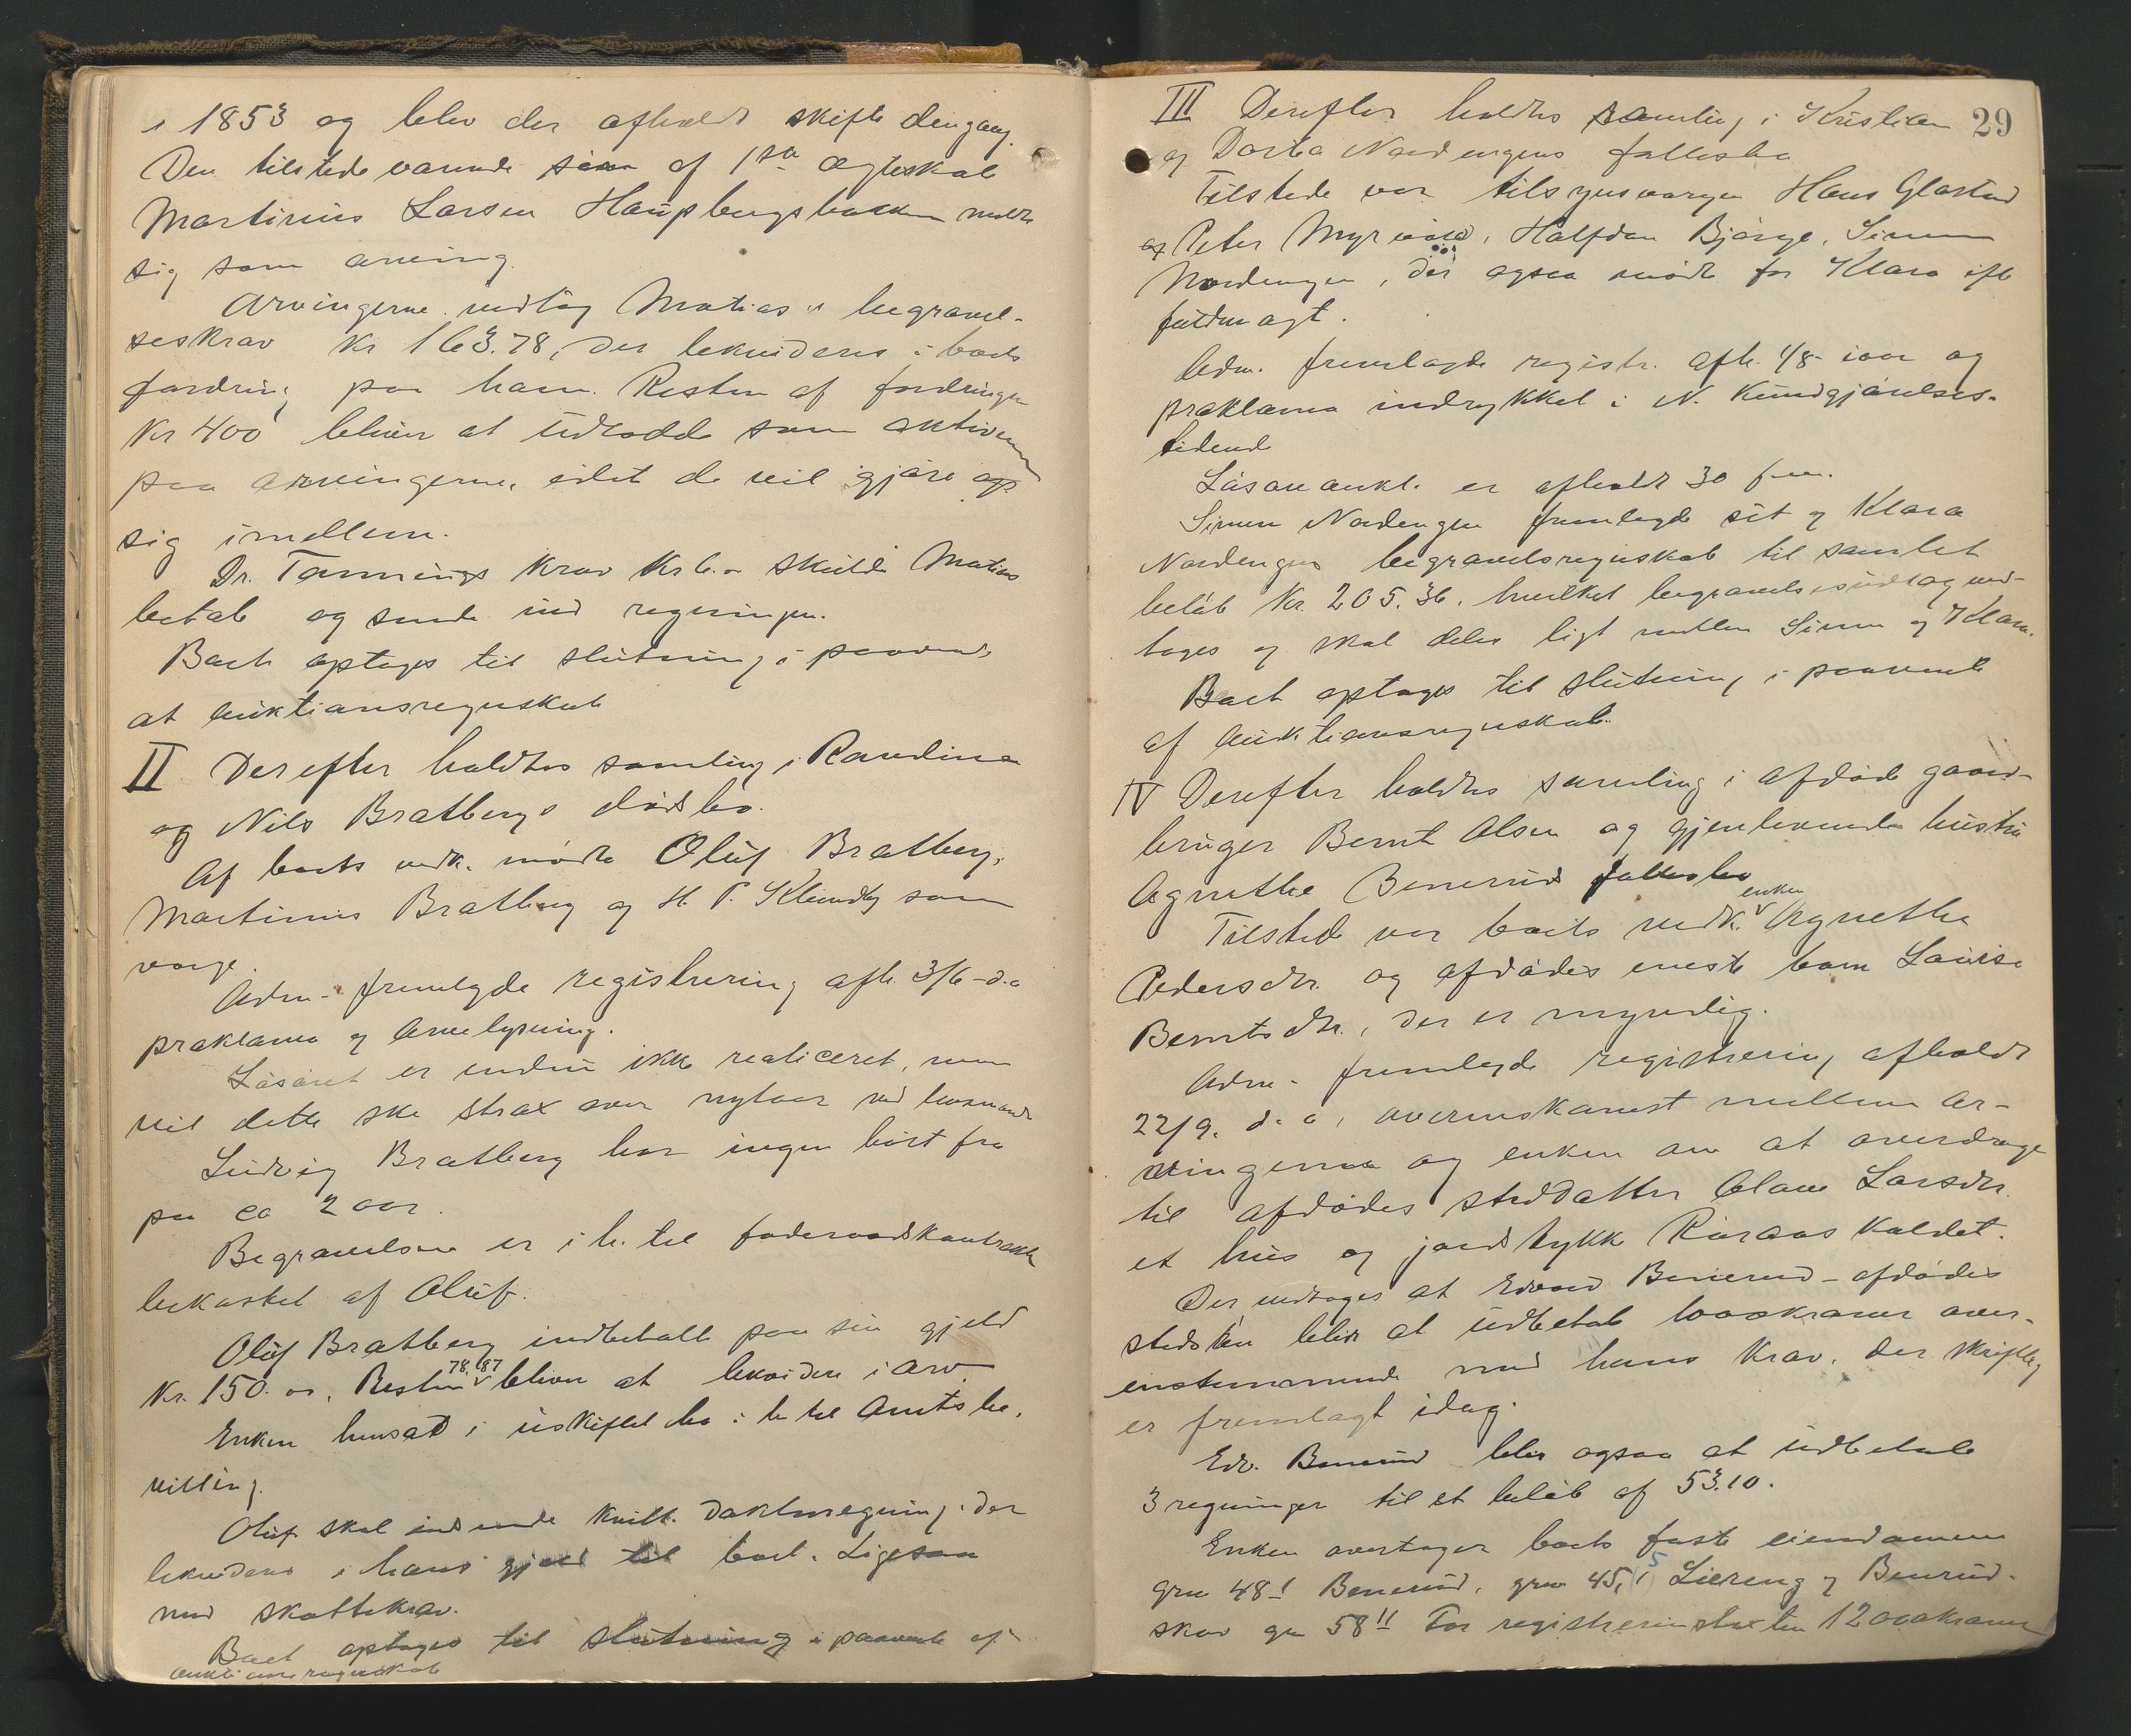 i 1853 og blev der afholdt skifte dengang.
Den tilstedeværende søn af 1ste ægteskab
Martinius Larsen Haugsbergsbakken meldte
sig som arving.
Arvingerne vedtog Matias's begravel-
seskrav Kr 163.78, der lekvideres i boets
fordring paa ham. Resten af fordringen
Kr 400 bliver at udlodde som aktivum
paa arvingerne, idet de vil gjøre op
sig imellem.
Dr. Tannings krav Kr 6.- skulde Matias
betale og sende ind regningen.
Boet optages til slutning i paavente
af auktionsregnskab
II Derefter holdtes samling i Randine
og Nils Bratbergs dødsbo.
Af boets vedk. mødte Oluf Bratberg,
Martinius Bratberg og H. P. Klundby som
verge.
Adm. fremlagde registrering afh. 3/6 d.a
proklama og Arvelysning.
Løsøret er endnu ikke realiceret, men
vil dette ske strax over nytaar ved
Ludvig Bratberg har ingen hørt fra
paa ca 2 aar.
Begravelsen er i h. til foderaadskontrakt
bekostet af Oluf.
Oluf Bratberg indbetalte paa sin gjeld
78.87
Kr. 150.00. Resten bliver at lekvidere i arv.
Enken hensad i uskiftet bo i h. til Amtsbe-
villing.
Oluf skal indsende kvitt. doktorregning der
lekvideres i hans gjæld til boet. Ligesaa
med skattekrav.
Boet optages til slutning i paavente af
auktionsregnskab
29
III Derefter holdtes samling i Kristian
og Dortea Nordengens fællesbo
Tilstede var tilsynsvergen Hans Glæstad
og Peter Myrvold, Halfdan Bjørge, Simen
Nordengen, der ogsaa mødte for Klara ifl
fuldmagt.
Adm. fremlagde registr. afh. 4/8 iaar og
proklama indrykket i N. Kundgjørelses-
tidende
Løsøreaukt. er afholdt 30 f.m.
Simen Nordengen fremlagde sit og Klara
Nordengens begravelsregnskab til samlet
beløb Kr. 205.36. hvilket begravelsesudlæg ved-
tages og skal deles ligt mellem Simen og Klara.
Boet optages til slutning i paavente
af Auktionsregnskab.
IV Derefter holdtes samling i afdøde gaard-
bruger Bernt Olsen og gjenlevende hustru
Agnethe Benerud fællesbo
enken
Tilstede var boets vedk. Agnethe
Pedersdtr. og afdødes eneste barn Louise
Berntsdtr., der er myndig.
Adm. fremlagde registrering afholdt
22/9. d.a, overenskomst mellem ar-
vingerne og enken om at overdrage
til afdødes steddatter Olave Larsdtr.
et hus og jordstykke Kaldet.
Der vedtoges at Edvard Benerud - afdødes
stedsøn bliver at udbetale 1000 kroner over-
ensstemmende med hans krav, der skriftlig
er fremlagt idag.
Edv. Benerud blir ogsaa at udbetale
3 regninger til et beløb af 53.10.
Enken overtager boets faste eiendomme
5
gno 48 1 Benerud, gno 45, Liereng og Benerud-
skov gn 58 11 For registreringstaxten 12000 kroner